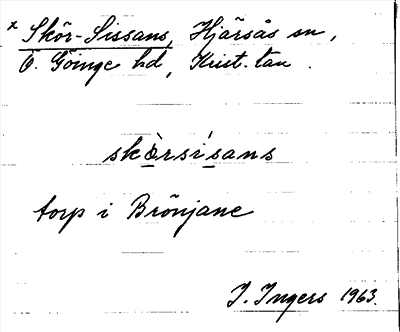 x Skör-Sissans, Hjärsås sn,
Ö. Göinge hd, Krist. län.
skö̀rsísans
torp i Brönjane
I. Ingers 1963.